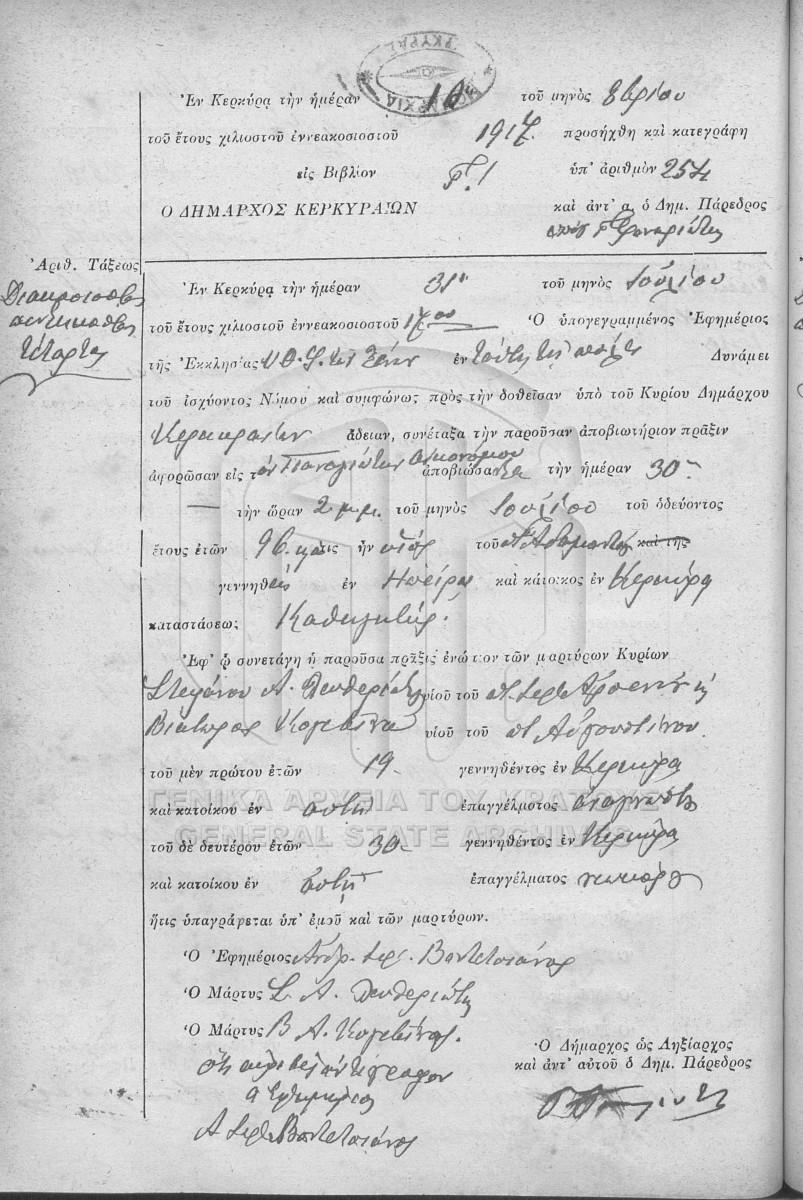 ΚΕΡΚΥΡΑΣ
ΔΗΜΑΡΧΙΑ
Ἐν Κερκύρᾳ τὴν ἡμέραν 10 τοῦ μηνὸς 8βρίου
τοῦ ἔτους χιλιοστοῦ ἐννεακοσιοστοῦ 1917 προσήχθη καὶ κατεγράφη
εἰς Βιβλίον Γ! ὑπ' ἀριθμὸν 254
Ο ΔΗΜΑΡΧΟΣ ΚΕΡΚΥΡΑΙΩΝ καὶ ἀντ' α. ὁ Δημ. Πάρεδρος
Ἀριθ. Τάξεως
Διακοσιοστὸς
πεντηκοστὸς
τέταρτος
Ἐν Κερκύρᾳ τὴν ἡμέραν 31η τοῦ μηνὸς Ἰουλίου
τοῦ ἔτους χιλιοστοῦ ἐννεακοσιοστοῦ 17ου Ὁ ὑπογεγραμμένος Ἐφημέριος
τῆς Ἐκκλησίας Υ. Θ. τῶν Ξένων ἐν ταύτῃ τῇ πόλει Δυνάμει
τοῦ ἰσχύοντος Νόμου καὶ συμφώνως πρὸς τὴν δοθεῖσαν ὑπὸ τοῦ Κυρίου Δημάρχου
Κερκυραίων ἄδειαν, συνέταξα τὴν παροῦσαν ἀποβιωτήριον πρᾶξιν
ἀφορῶσαν εἰς τὸν Παναγιώτην Οἰκονόμου ἀποβιώσαντα τὴν ἡμέραν 30ην
— τὴν ὥραν 2 μ.μ. τοῦ μηνὸς Ἰουλίου τοῦ ὁδεύοντος
ἔτους ἐτῶν 96 ὅστις ἦν υἱὸς τοῦ π. Ἀδαμαντίου καὶ τῆς
γεννηθεὶς ἐν Ἠπείρῳ καὶ κάτοικος ἐν Κερκύρᾳ
καταστάσεως Καθηγητής.
Ἐφ' ᾧ συνετάγη ἡ παροῦσα πρᾶξις ἐνώπιον τῶν μαρτύρων Κυρίων
Στεφάνου Α. Λευθεριώτη υἱοῦ τοῦ
Βίκτωρος Κογεβίνα υἱοῦ τοῦ π Αὐγουστίνου
τοῦ μὲν πρώτου ἐτῶν 19 γεννηθέντος ἐν Κερκύρᾳ
καὶ κατοίκου ἐν αὐτῇ ἐπαγγέλματος ἀναγνώστη
τοῦ δὲ δευτέρου ἐτῶν 30 γεννηθέντος ἐν Κερκύρᾳ
καὶ κατοίκου ἐν αὐτῇ ἐπαγγέλματος νεωκόρος
ἥτις ὑπαγράφεται ὑπ' ἐμοῦ καὶ τῶν μαρτύρων.
Ὁ Ἐφημέριος Ἀνδρ. ἱερ. Βοντετσιάνος
Ὁ Μάρτυς Σ. Α. Λευθεριώτης
Ὁ Μάρτυς Β Α. Κογεβίνας.
Ὅτι ἀκριβὲς ἀντίγραφον
Ὁ Ἐφημέριος
Α ἱερ. Βοντετσιάνος
Ὁ Δήμαρχος ὡς Ληξίαρχος
καὶ ἀντ' αὐτοῦ ὁ Δημ. Πάρεδρος
ΓΕΝΙΚΑ ΑΡΧΕΙΑ ΤΟΥ ΚΡΑΤΟΥΣ
GENERAL STATE ARCHIVES